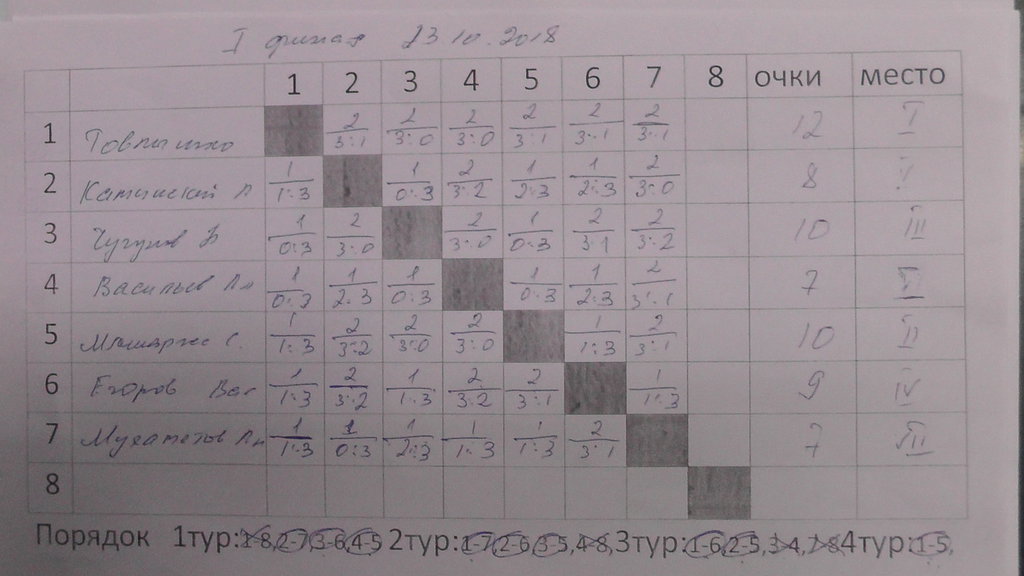 I финал 23.10.2018
1 2 3 4 5 6 7 8 очки место
1 2 3:1 2 3:0 2 3:0 2 3:1 2 3:1 2 3:1 12 I
2 Каминский 1 1:3 1 0:3 2 3:2 1 2:3 1 2:3 2 3:0 8 V
3 Чугунов В 1 0:3 2 3:0 2 3:0 1 0:3 2 3:1 2 3:2 10 III
4 Васильев 1 0:3 1 2:3 1 0:3 1 0:3 1 2:3 2 3:1 7
5 С. 1 1:3 2 3:2 2 3:0 2 3:0 1 1:3 2 3:1 10 II
6 Егоров Вас 1 1:3 2 3:2 1 1:3 2 3:2 2 3:1 1 1:3 9 IV
7 1 1:3 1 0:3 1 2:3 1 1:3 1 1:3 2 3:1 7
8
Порядок 1тур:1-8,2-7,3-6,4-5 2тур:1-7,2-6,3-5,4-8,3тур:1-6,2-5,3-4,7-8,4тур:1-5,